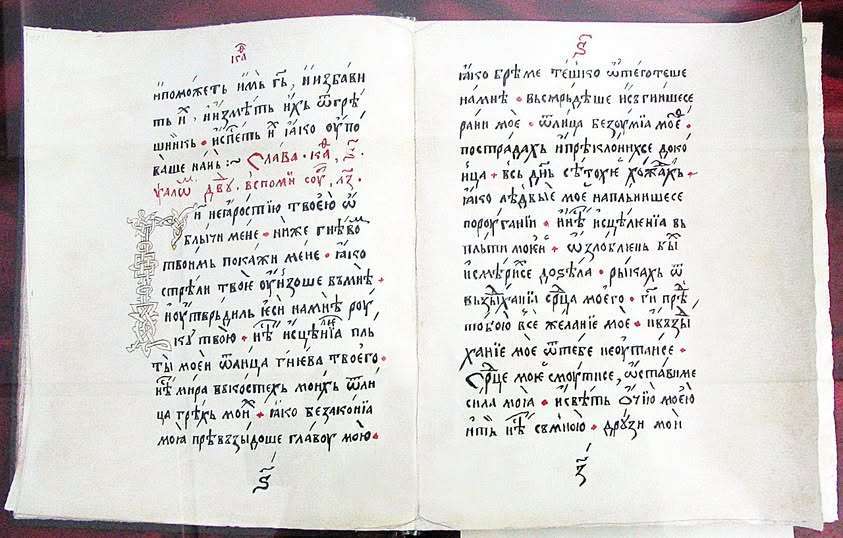 ипоможеть имь гь, и избави
ть и҆, и измѣть ихь ѿгрѣ
шникь • испеть и҆ ꙗко оупо
ваше нань :~ Слава • ка,
ѱалѡ дв҃дү, вспоми соу,
Ги негаростїю твоею ѡ
бличи мене • ниже гнѣво
твоимь покажи мене • ꙗко
стрѣли твою оунзоше вьмнѣ •
иоутврьдиль ѥси намнѣ роу
кү твою • нѣ исцѣнїа пль
ты моеи ѿлица гнѥва твоего •
нѣ мира вькостехь моихь ѿли
ца грѣхь мои • ꙗко безаконїа
моꙗ прѣвьзыдоше главоу мою •
ꙗко брѣме тешко ѿтеготеше
намнѣ • вьсмрьдѣше исьгнишесе
рани мое • ѿлица безоумїа моѥ •
пострадахь ипрѣклонихсе доко
нца • вьсь днь сѣтоуѥ хождахь •
ꙗко лѣдвыѥ моѥ напльнишесе
пороуганїи • инѣ исцѣленїа вь
пльти моѥи • ѡзлоблень бы
исмѣрихсе доѕѣла • рыкахь ѿ
вьздыханїи срдца моего • ги прѣ
тобою все желанїе мое • ивьзды
ханїе мое ѿтебе неоутаисе •
Срдце моѥ смоутисе, ѡставиме
сила моꙗ • исвѣть ѡчїю моѥю
итъ нѣ сьмною • дрѹзи мои